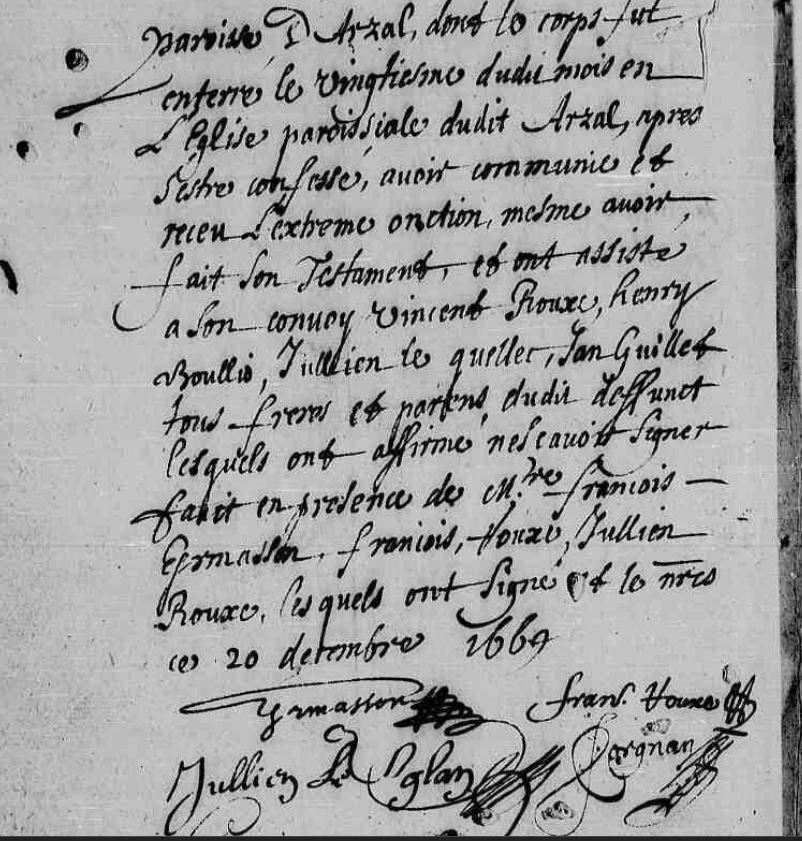 paroisse D Arzal, dont le corps fut
enterré le vingtiesme dudit mois en
L'Eglise paroissiale dudit Arzal, apres
s'estre confessé, avoir communié et
receu L'extreme onction, mesme avoir
fait son Testament, et ont assisté
a son convoy vincent Rouxe, henry
Boullio, Jullien le quellec, Jan Guillet
tous freres et parens dudit deffunct
lesquels ont affirmé ne scavoir signer
fait en presence de M.tre francois
francois, Jullien
Rouxe, lesquels ont signé et le
ce 20 decembre 1669
fran.
Jullien Le